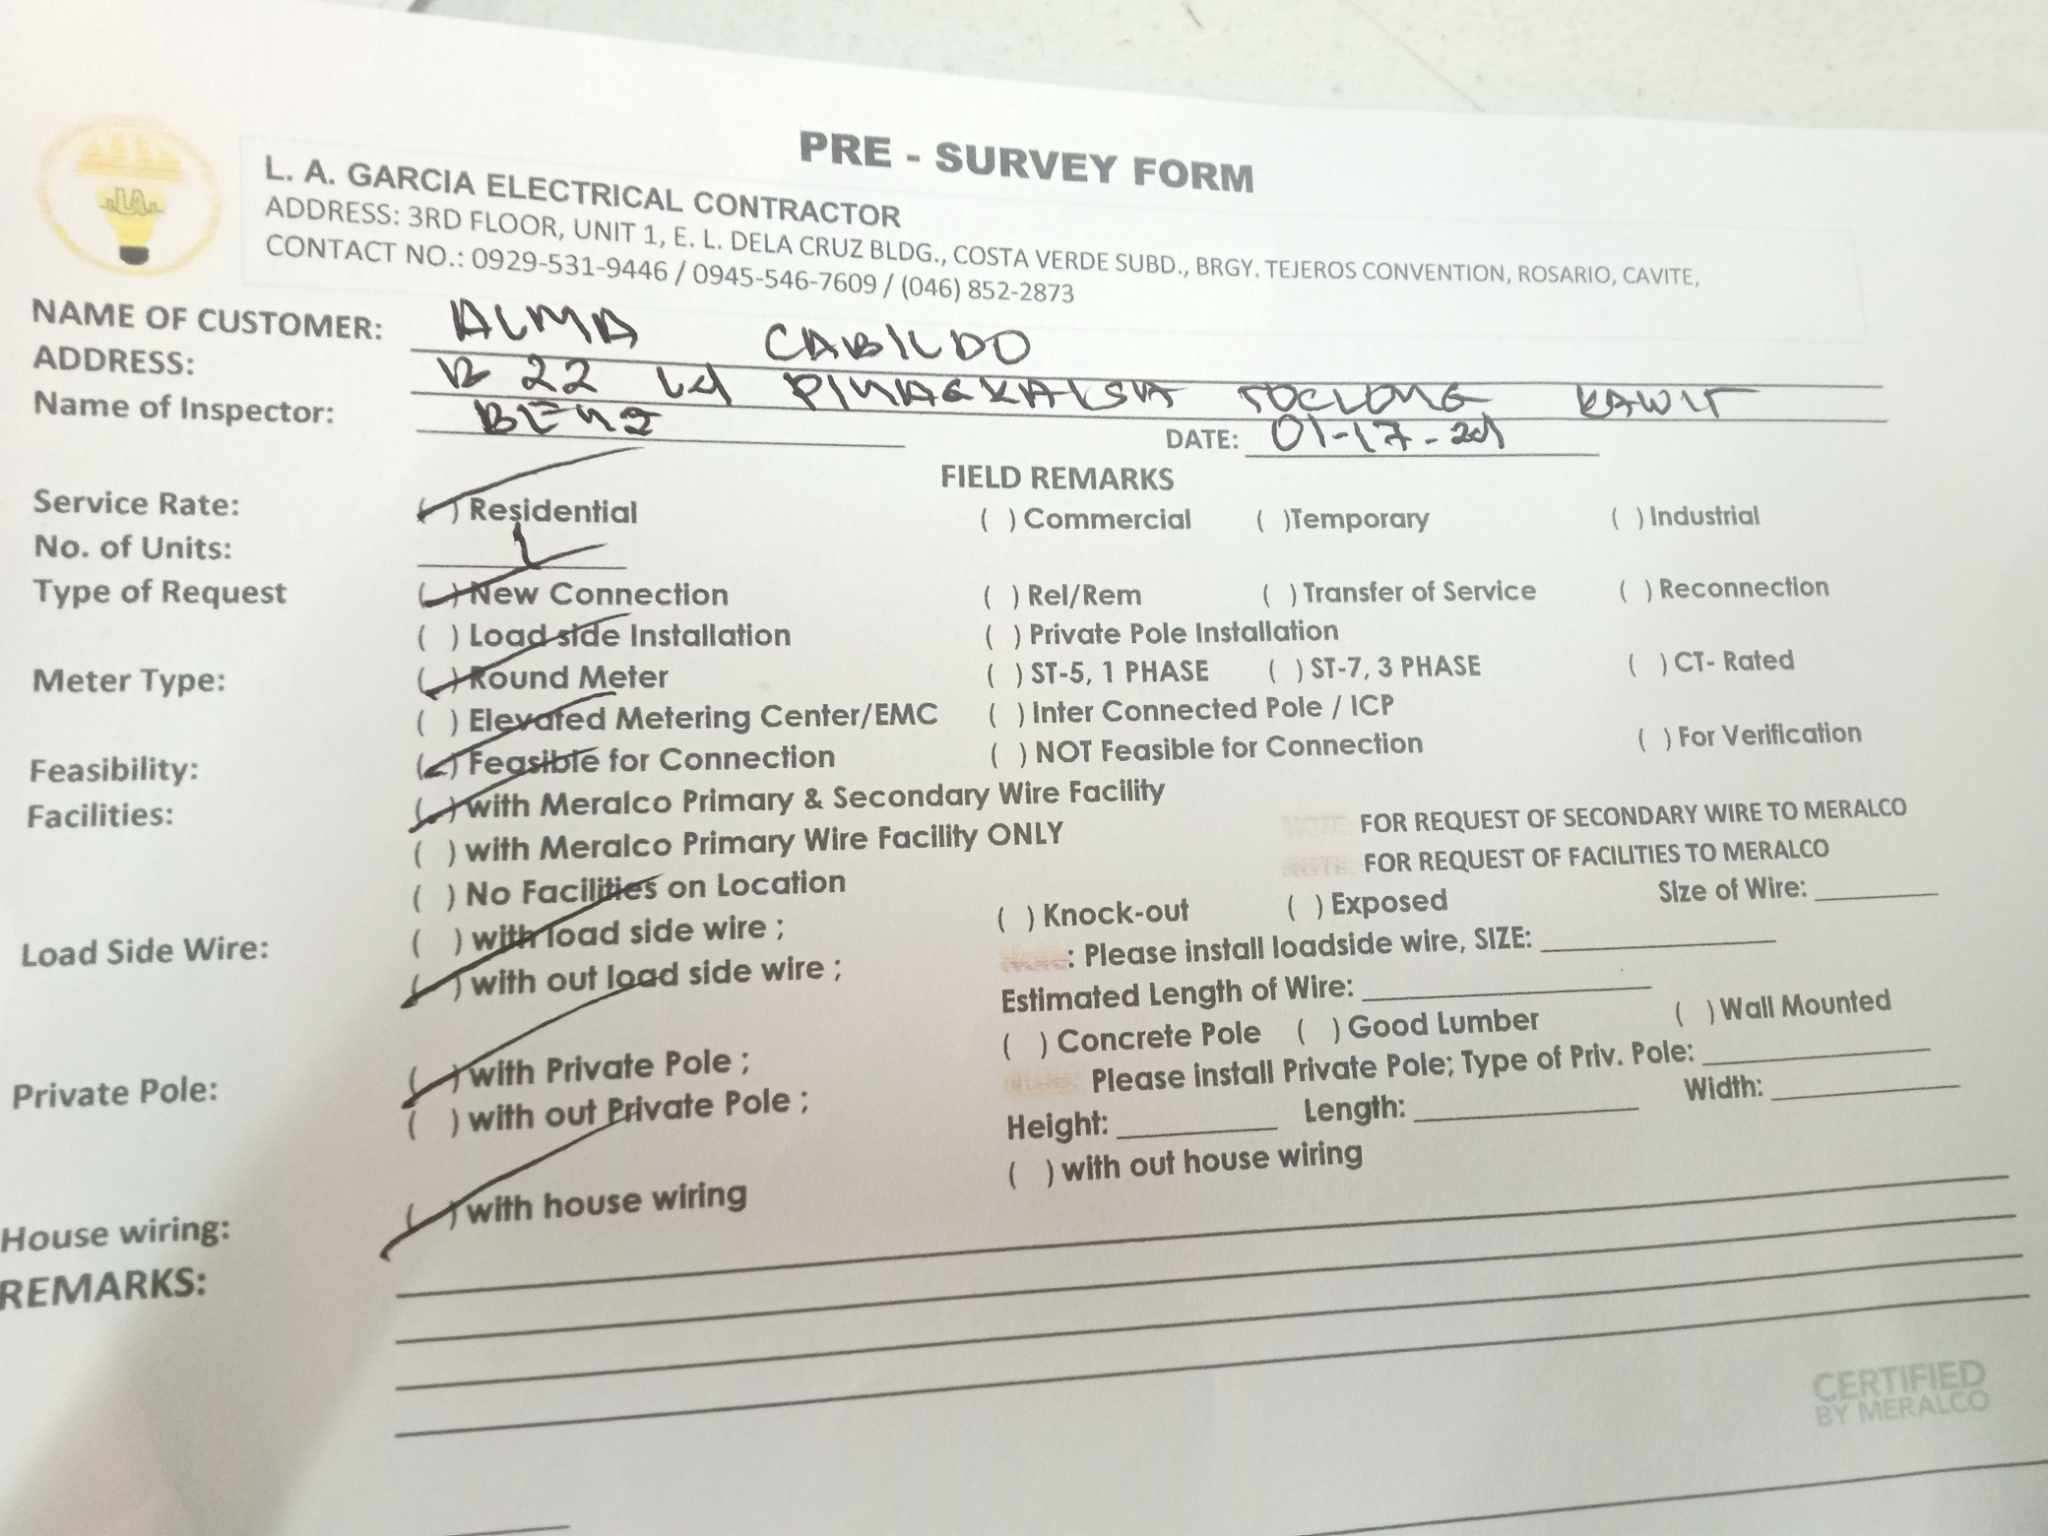 PRE - SURVEY FORM
L. A. GARCIA ELECTRICAL CONTRACTOR
ADDRESS: 3RD FLOOR, UNIT 1, E. L. DELA CRUZ BLDG., COSTA VERDE SUBD., BRGY. TEJEROS CONVENTION, ROSARIO, CAVITE,
CONTACT NO.: 0929-531-9446 / 0945-546-7609 / (046) 852-2873
NAME OF CUSTOMER: ALMA CABILDO
ADDRESS: B 22 L4 PINAGKAISA TOCLONG KAWIT
Name of Inspector:
DATE: 01-17-24
FIELD REMARKS
Service Rate: (✓) Residential ( ) Commercial ( )Temporary ( ) Industrial
No. of Units: 1
Type of Request (✓) New Connection ( ) Rel/Rem ( ) Transfer of Service ( ) Reconnection
( ) Load side Installation ( ) Private Pole Installation
Meter Type: (✓) Round Meter ( ) ST-5, 1 PHASE ( ) ST-7, 3 PHASE ( ) CT- Rated
( ) Elevated Metering Center/EMC ( ) Inter Connected Pole / ICP
Feasibility: (✓) Feasible for Connection ( ) NOT Feasible for Connection ( ) For Verification
Facilities: (✓) with Meralco Primary & Secondary Wire Facility
( ) with Meralco Primary Wire Facility ONLY NOTE: FOR REQUEST OF SECONDARY WIRE TO MERALCO
( ) No Facilities on Location NOTE: FOR REQUEST OF FACILITIES TO MERALCO
Load Side Wire: ( ) with load side wire ; ( ) Knock-out ( ) Exposed Size of Wire:
(✓) with out load side wire ; Note: Please install loadside wire, SIZE:
Estimated Length of Wire:
Private Pole: (✓) with Private Pole ; ( ) Concrete Pole ( ) Good Lumber ( ) Wall Mounted
( ) with out Private Pole ; Note: Please install Private Pole; Type of Priv. Pole:
Height: Length: Width:
House wiring: (✓) with house wiring ( ) with out house wiring
REMARKS:
CERTIFIED
BY MERALCO